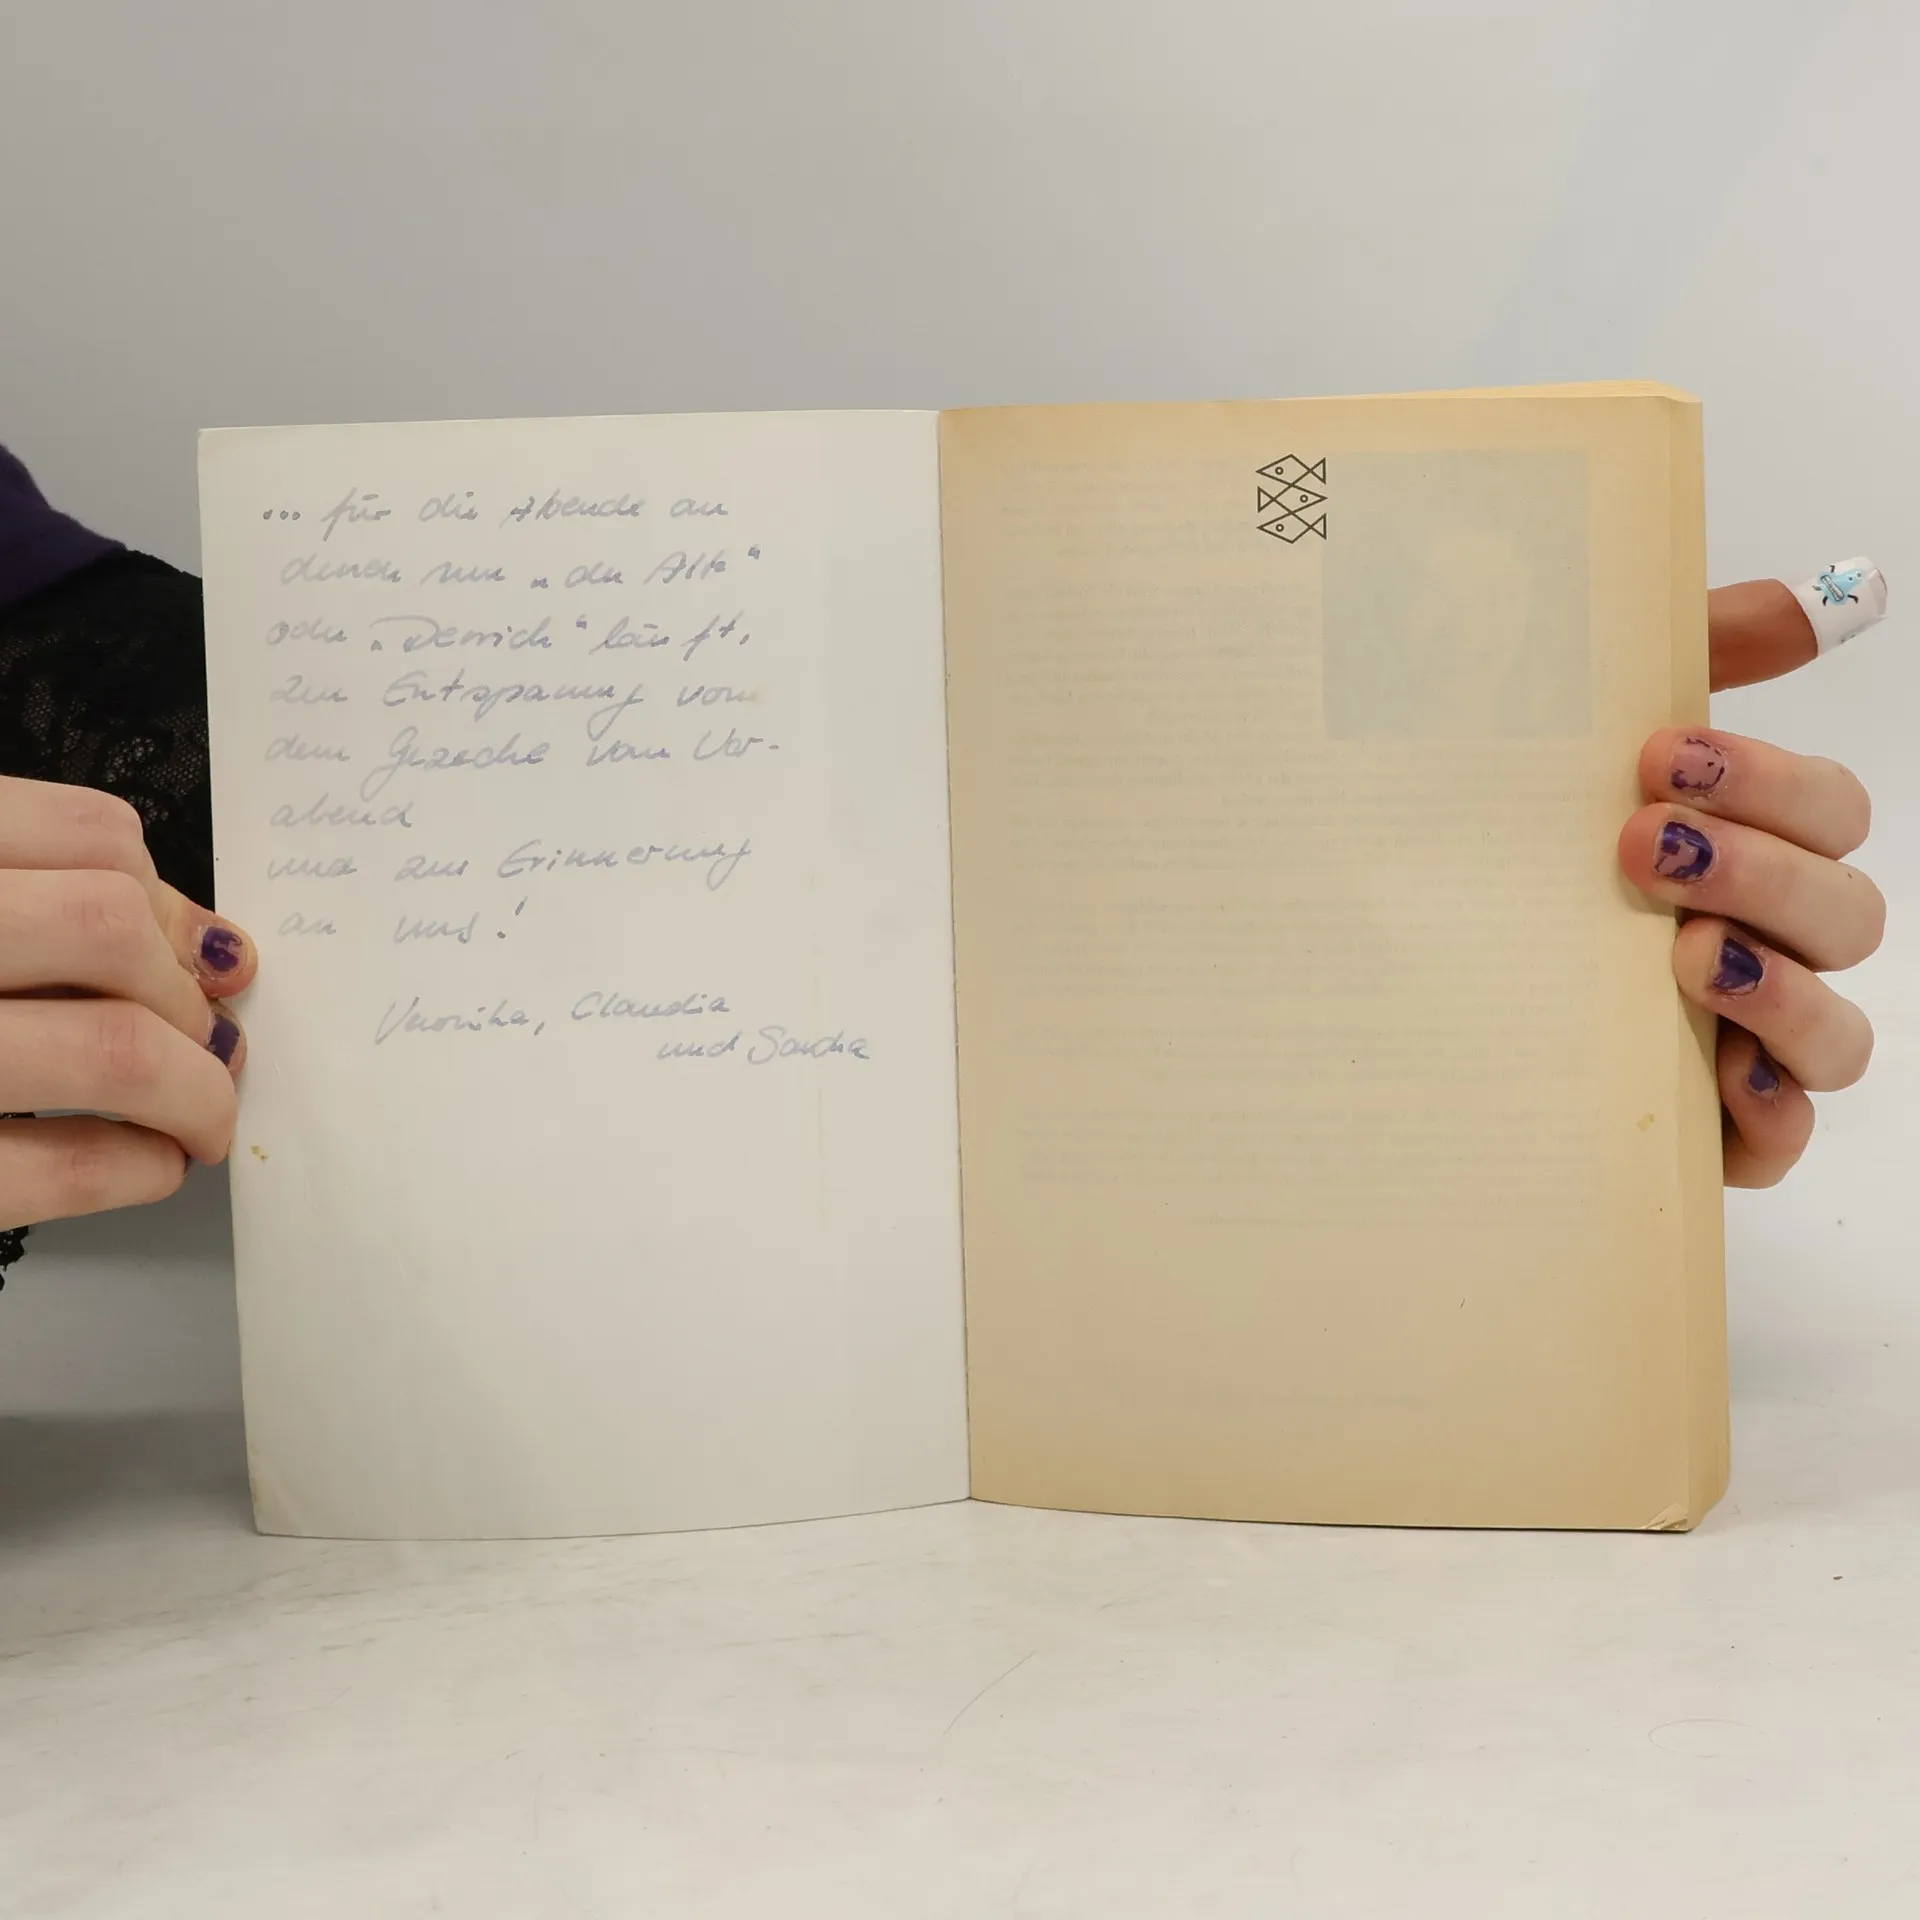 ... für die Abende an
denen nur „der Alte“
oder „Derrick“ läuft,
zur Entspannung von
dem Gezeche vom Vor-
abend
und zur Erinnerung
an uns!
Veronika, Claudia
und Sascha